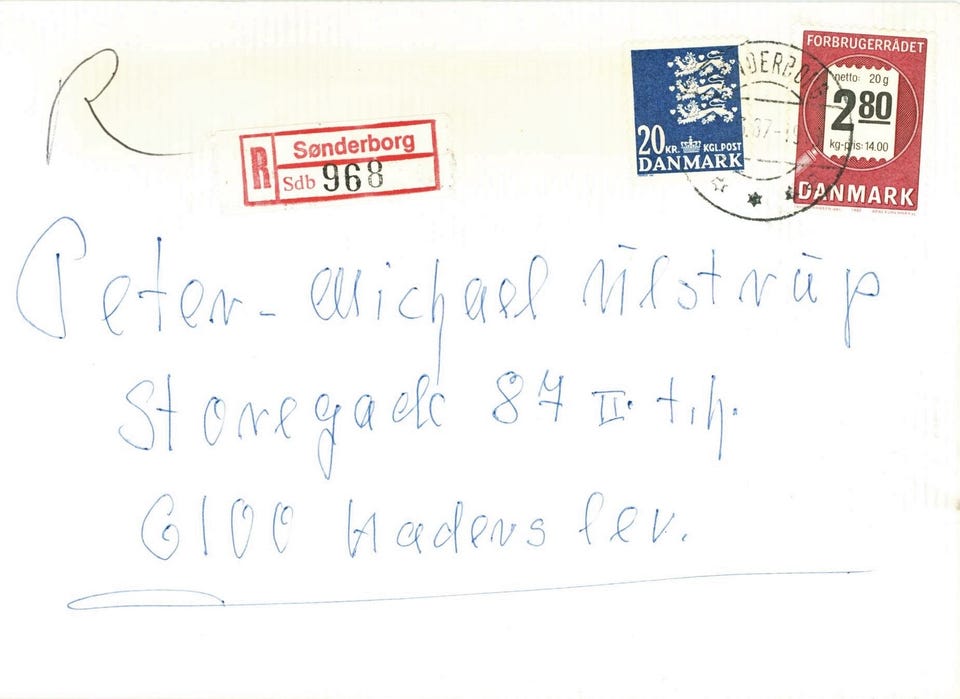 R
R Sønderborg
Sdb 968
20 KR. KGL.POST
DANMARK
FORBRUGERRÅDET
netto: 20 g
2 80
kg-pris: 14.00
DANMARK
Peter-Michael Ulstrup
Storegade 87 II. t.h.
6100 Haderslev.